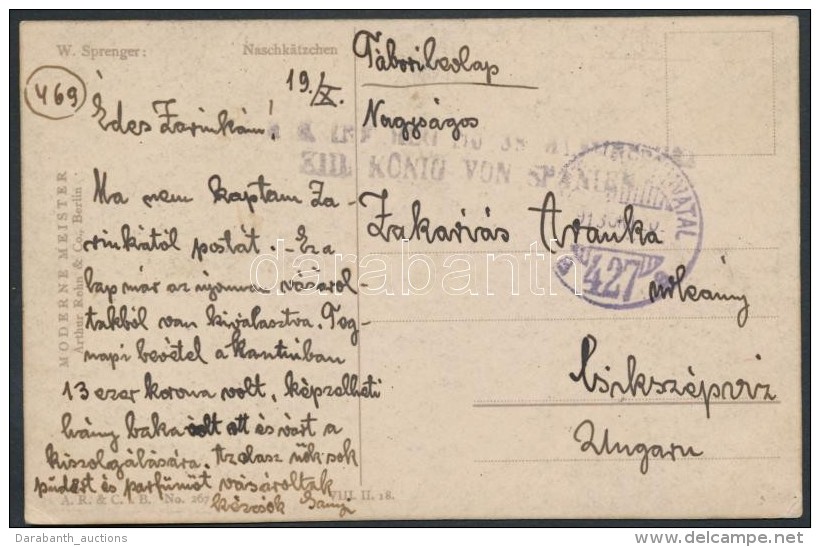 W. Sprenger:
Naschkätzchen
469
19./X.
Édes Zarinkám!
Ma nem kaptam Za-
rinkától postát. Ez a
lap már az újonnan vásárol-
takból van kiválasztva. Teg-
napi bevétel a kantinban
13 ezer korona volt, képzelheti
hány baka volt ott és várt a
kiszolgálására. Az olasz nők sok
púdert és parfümöt vásároltak
kézcsók
MODERNE MEISTER
Arthur Rehn & Co., Berlin
A. R. & C. i. B. No. 267
VIII. II. 18.
Tábori levlap
Nagyságos
XIII. KÖNIG VON SPANIEN
427
Zakariás Aranka
úrleány
Csikszépviz
Ungarn
darabanth
© Darabanth_auctions
www.delcampe.net